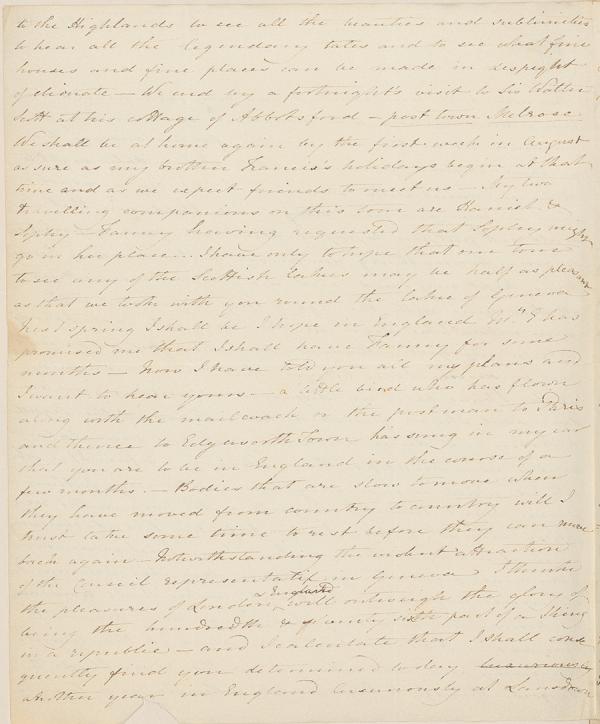 to the Highlands to see all the beauties and sublimities
to hear all the legendary tales and to see what fine
houses and fine places can be made in despight
of climate – We end by a fortnight's visit to Sir Walter
Scott at his cottage of Abbotsford – post town Melrose.
We shall be at home again by the first week in August
as sure as my brother Francis's holidays begin at that
time and as we expect friends to meet us – My two
travelling companions on this tour are Harriet &
Sophy – Fanny having requested that Sophy might
go in her place... I have only to hope that our tour
to see any of the Scottish Lakes may be half as pleasant
as that we took with you round the Lake of Geneva
Next spring I shall be I hope in England Mrs E has
promised me that I shall have Fanny for some
months – Now I have told you all my plans and
I want to hear yours – a little bird who has flown
along with the mail coach or the postman to Paris
and thence to Edgeworth Town has sung in my ear
that you are to be in England in the course of a
few months. – Bodies that are slow to move when
they have moved from country to country will I
trust take some time to rest before they can move
back again – Notwithstanding the attraction
of the Conseil representatif in Geneva, I think
the pleasures of London & England will outweigh the glory of
being the hundredth & sixth part of a King
in a republic – and I calculate that I shall conse
quently find you determined to day luxuriously
another year in England luxuriously at Lansdown